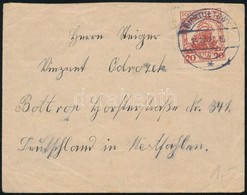 20 20
Herrn Steiger
Vinzent Odrozek
Bottrop Horsterstraße Nr. 341.
Deutschland in Westfahlen.